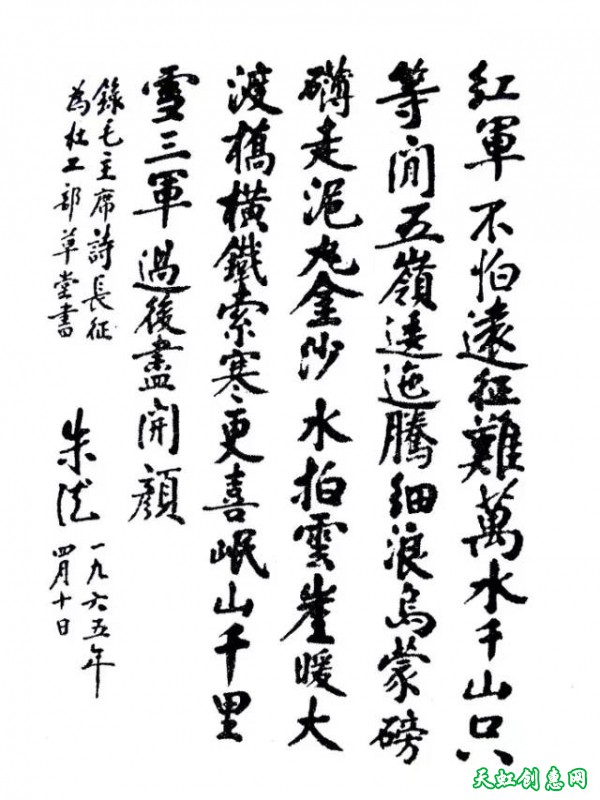 紅軍不怕遠征難萬水千山只
等閒五嶺逶迤騰細浪烏蒙磅
礴走泥丸金沙水拍雲崖暖大
渡橋橫鐵索寒更喜岷山千里
雪三軍過後盡開顏
錄毛主席詩長征
為杜工部草堂書
朱德
一九六五年
四月十日
天虹创惠网